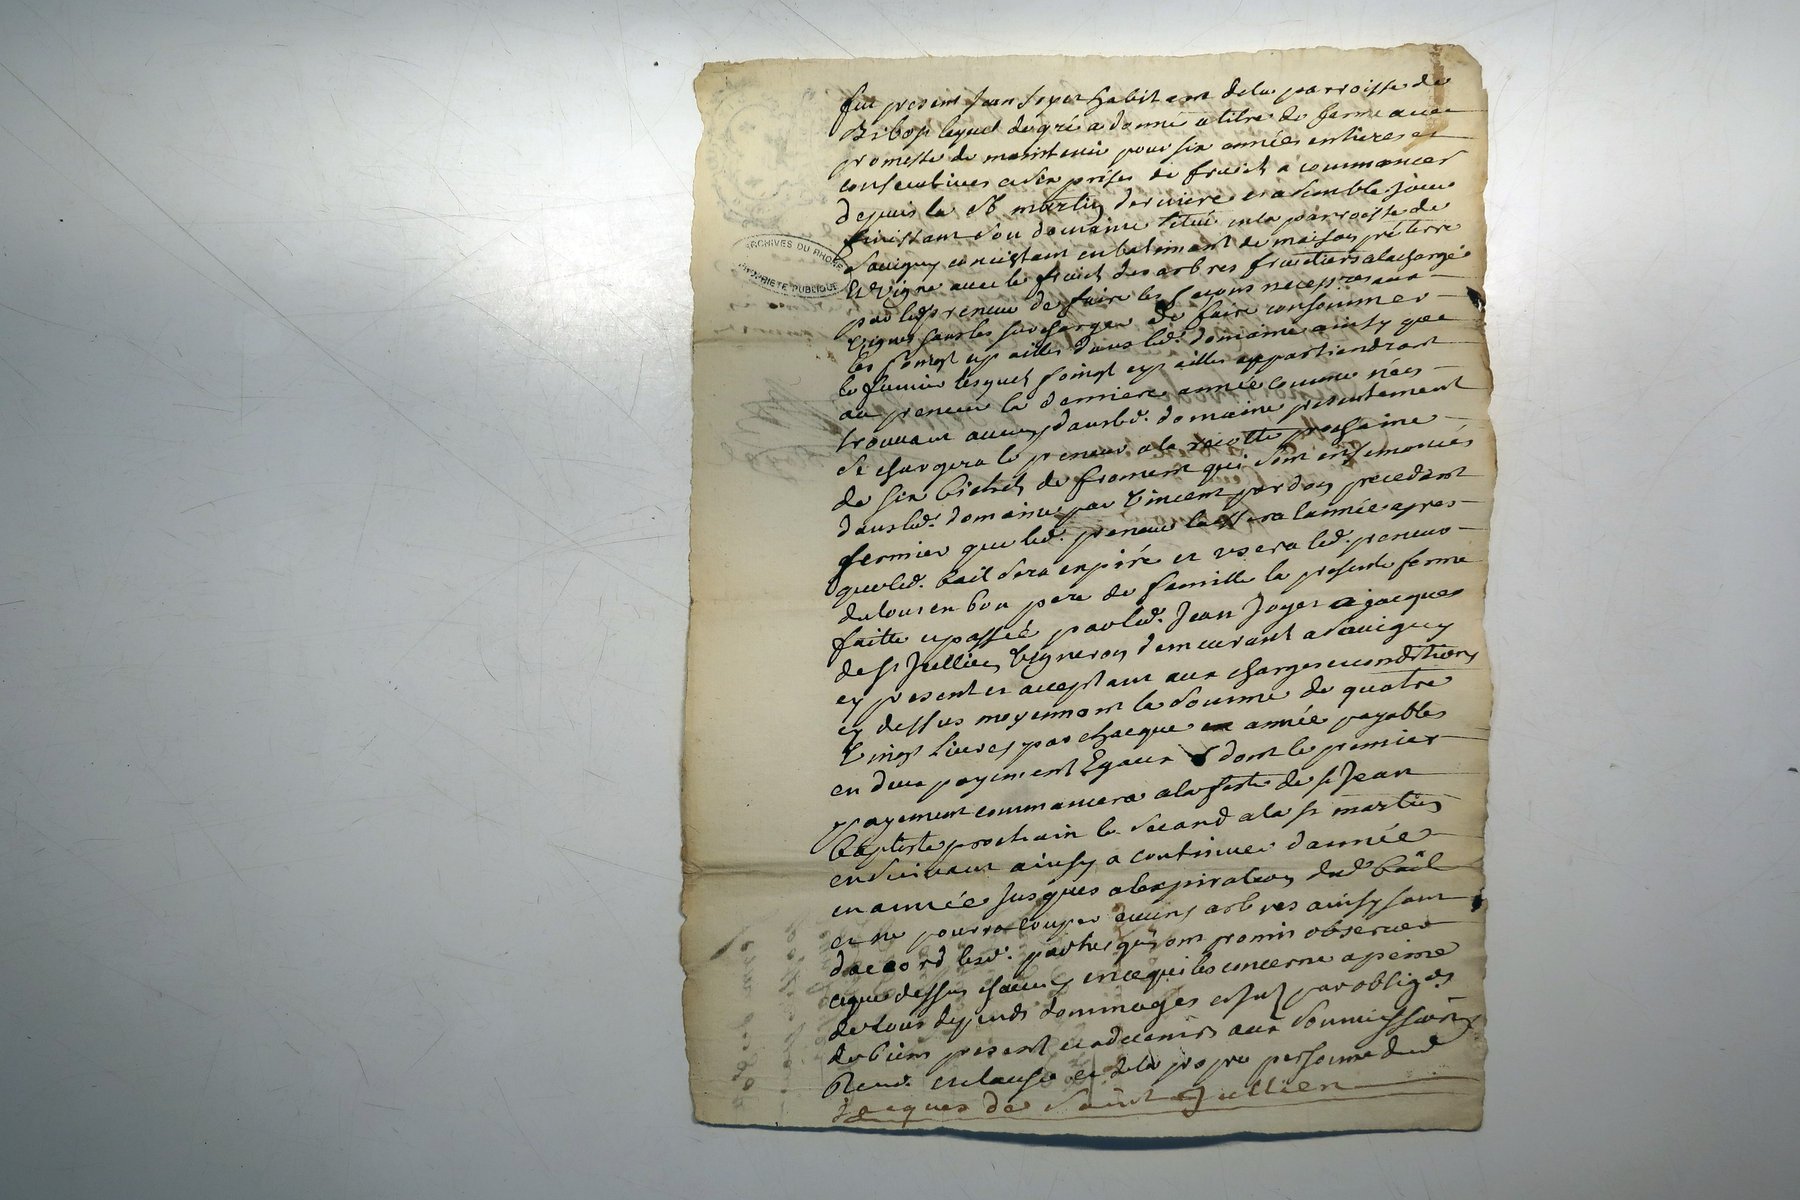 fut present Jean Joyet habitant de la parroisse de
Bibost lequel de gré a donné a titre de ferme avec
promesse de maintenir pour six années entieres et
consecutives et six prises de fruicts a commancer
depuis la St martin derniere et a semble jour
finissant son domaine situé en la parroisse de
Savigny concistant en batiment de maison pré terre
Et vigne avec le fruict des arbres fruitiers a la charge
par led. preneur de faire les façons necess.res aux
vignes sans les surcharger de faire consommer
les foingt et pailles dans led. domaine ainsy que
le fumier lesquels foingt et pailles appartiendront
au preneur la derniere année comme n'en
trouvant aucuns dans led. domaine presentement
se chargera le preneur a la recolte prochaine
de six bichets de froment qui sont ensemencés
dans led. domaine par Vincent pardon precedant
fermier que led. preneur laissera l'année apres
que led. bail sera expiré et usera led. preneur
de tout en bon pere de famille la presente ferme
faitte et passée par led. Jean Joyet a jacques
de St Jullien Vigneron demeurant a Savigny
cy present et acceptant aux charges et conditions
cy dessus moyennant la somme de quatre
Vingt livres par chacque année payables
en deux payement Egaux dont le premier
payement commancera a la feste de St Jean
baptiste prochain le second a la St martin
en suivant ainsy a continuer d'année
en année jusques a l'expiration dud. bail
et ne pourra couper aucuns arbres ainsy sont
d'accord lesd. parties qu'ont promis observer
ce que dessus chacuns en ce qui les concerne a peine
de tous depends dommages et par oblig.on
de biens present et advenir aux soumissions
Renon. et clauses et de la propre personne dud.
Jacques de Saint Jullien
ARCHIVES DU RHONE
PROPRIETE PUBLIQUE